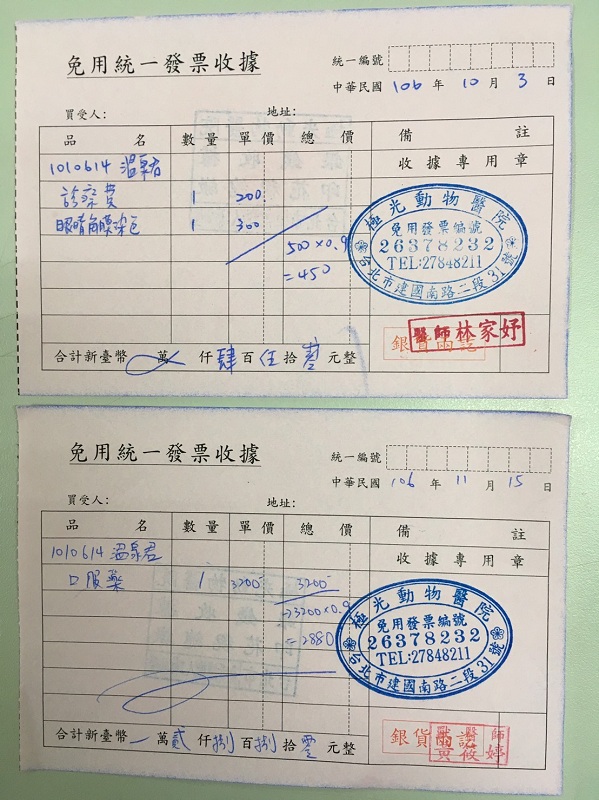 免用統一發票收據
統一編號
中華民國 106 年 10 月 3 日
買受人： 地址：
品 名 數量 單價 總價 備 註
收據專用章
1010614 溫泉君
診察費 1 200
眼睛角膜染色 1 300
500×0.9
=450
極光動物醫院
免用發票編號
26378232
TEL:27848211
台北市建國南路二段31號
醫師林家妤
銀貨兩訖
合計新臺幣 萬 仟 肆 百 伍 拾 零 元整
免用統一發票收據
統一編號
中華民國 106 年 11 月 15 日
買受人： 地址：
品 名 數量 單價 總價 備 註
收據專用章
1010614 溫泉君
口服藥 1 3200 3200
3200×0.9
=2880
極光動物醫院
免用發票編號
26378232
TEL:27848211
台北市建國南路二段31號
銀貨兩訖
合計新臺幣 萬 貳 仟 捌 百 捌 拾 零 元整